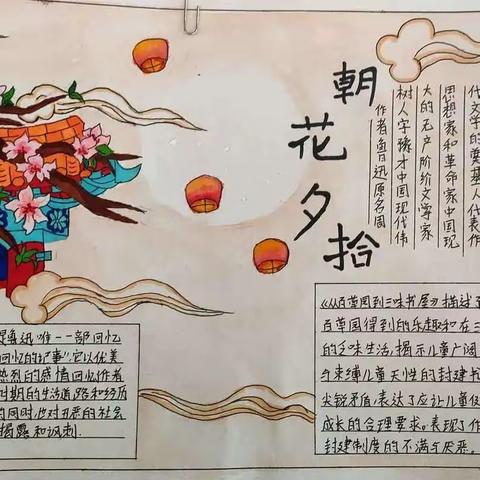 朝花夕拾
作者鲁迅原名周
树人字豫才中国现代伟
大的无产阶级文学家
思想家和革命家中国现
代文学的奠基人代表作
鲁迅唯一一部回忆
回忆的记事",它以优美
热烈的感情回忆作者
时期的生活道路和经历
的同时,也对丑恶的社会
揭露和讽刺.
《从百草园到三味书屋》描述
百草园得到的乐趣和在三
的乏味生活,揭示儿童广阔
与束缚儿童天性的封建书
尖锐矛盾,表达了应让儿童
成长的合理要求。表现了作
封建制度的不满与厌恶。